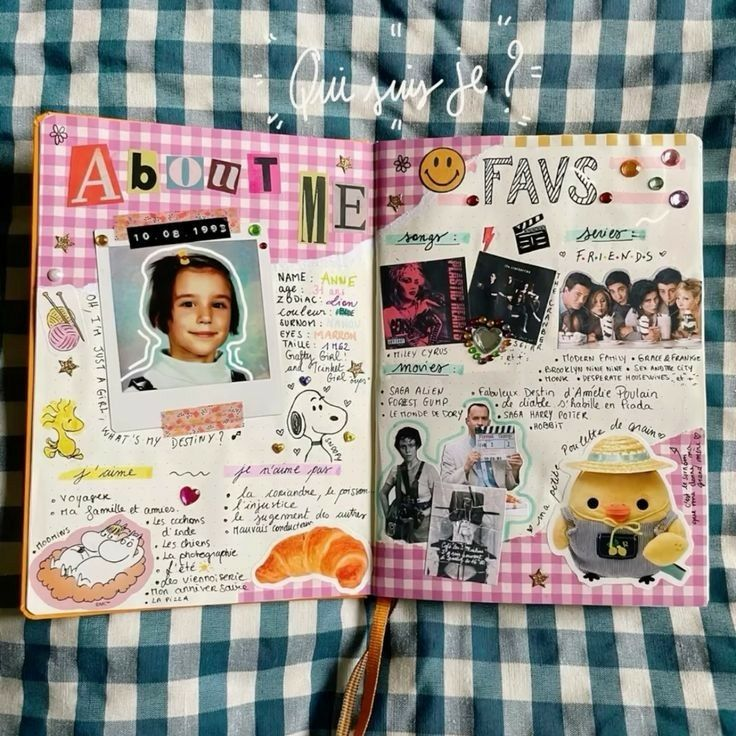 Qui suis je ?
ABOUT ME
10.08.1993
NAME : ANNE
age : 31 ans
ZODIAC : Lion
couleur :
SURNOM : NANOU
EYES : MARRON
TAILLE : 1M62
Crafty Girl !
and Market Girl
OH I'M JUST A GIRL
WHAT'S MY DESTINY ?
SNOOPY
j'aime
• VOYAGER
• Ma famille et amies.
• MOOMINS
• Les cochons d'inde
• Les chiens
• La photographie
• l'été
• Les viennoiserie
• Mon anniversaire
• LA PIZZA
je n'aime pas
• la coriandre, le poisson
• l'injustice
• le jugement des autres
• Mauvais conducteur
FAVS
songs :
PLASTIC HEARTS
THE CRANBERRIES
• MILEY CYRUS
et +
series :
F•R•I•E•N•D•S
• MODERN FAMILY • GRACE & FRANKIE
• BROOKLYN NINE NINE • SEX AND THE CITY
• MONK • DESPERATE HOUSEWIVES et +
movies :
SAGA ALIEN
FORREST GUMP
• LE MONDE DE DORY
• Fabuleux Destin d'Amélie Poulain
• Le diable s'habille en Prada
• SAGA HARRY POTTER
• HOBBIT
Forrest Gump
ma petite Poulette de grain